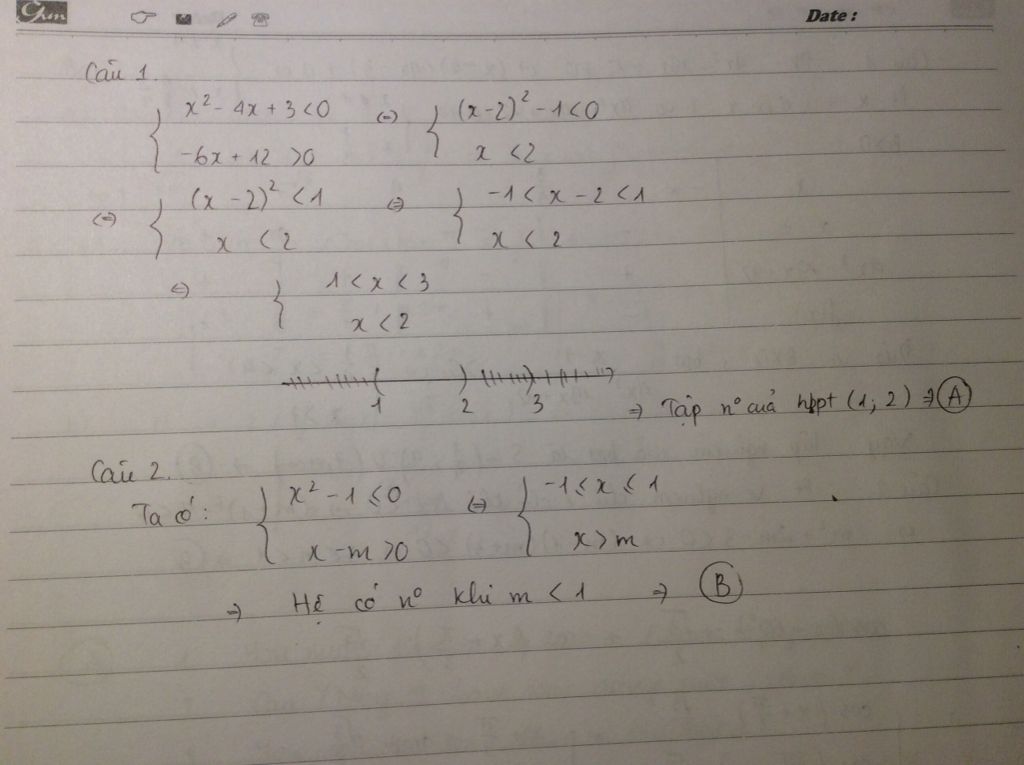 Date :
Câu 1.
{ x² - 4x + 3 < 0 (=) { (x - 2)² - 1 < 0
-6x + 12 > 0 x < 2
(=) { (x - 2)² < 1 (=) { -1 < x - 2 < 1
x < 2 x < 2
(=) { 1 < x < 3
x < 2
1 2 3 => Tập n° của hbpt (1; 2) => A
Câu 2.
Ta có: { x² - 1 ≤ 0 (=) { -1 ≤ x ≤ 1
x - m > 0 x > m
=> Hệ có n° khi m < 1 => B